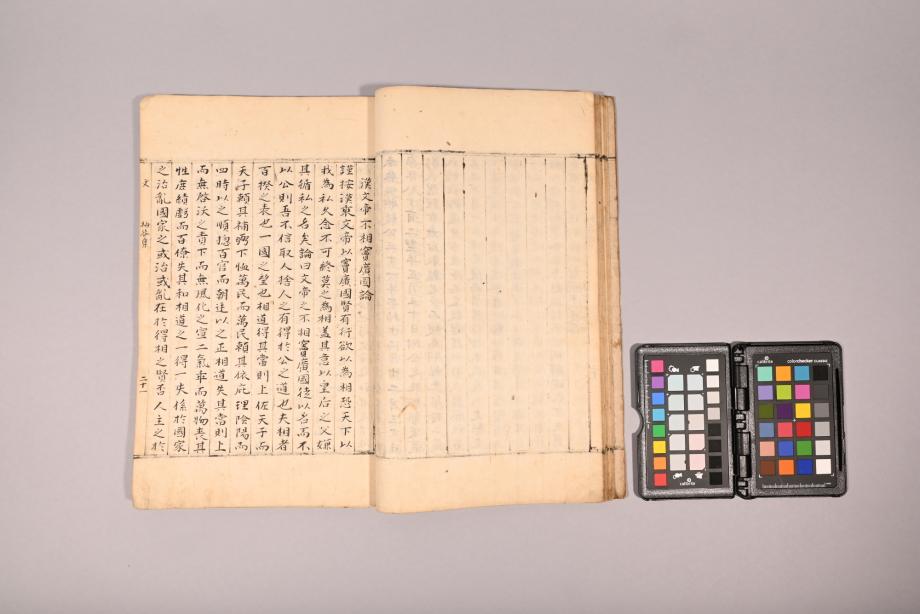 漢文帝不相竇廣國論
謹按漢東文帝以竇廣國賢有行欲以為相恐天下以
我為私久念不可終莫之為相盖其意以皇后之父嫌
其循私之名矣論曰文帝之不相竇廣國徒以名而不
以公則吾不信取人捨人之有得於公之道也夫相者
百揆之表也一國之望也相道得其當則上佐天子而
天子賴其補弼下恤萬民而萬民賴其依庇理陰陽而
四時以之順摠百官而朝廷以之正相道失其當則上
而無啓沃之責下而無風化之宣二氣乖而萬物喪其
性庶績虧而百僚失其和相道之一得一失係於國家
之治亂國家之或治或亂在於得相之賢否人主之於
文
二十一
calibrite
colorchecker classic
calibrite